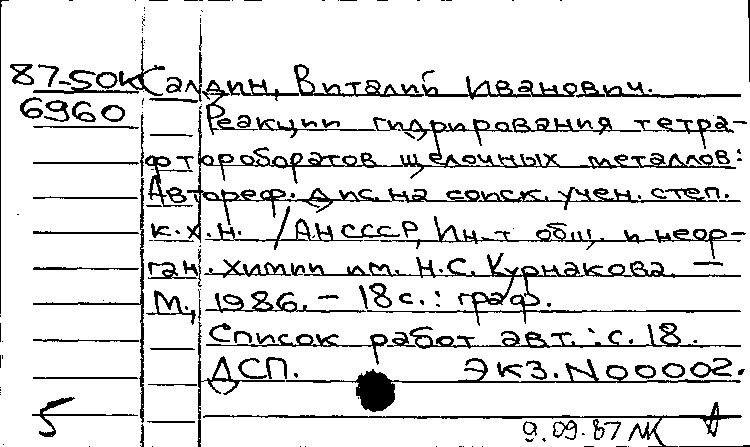 87-50К Салдин, Виталий Иванович.
6960 Реакции гидрирования тетра-
фтороборатов щелочных металлов:
Автореф. дис. на соиск. учен. степ.
к.х.н. /АН СССР, Ин-т общ. и неор-
ган. химии им. Н.С. Курнакова. —
М., 1986. – 18 с.: граф.
Список работ авт.: с. 18.
ДСП. Экз. N00002.
5 9.09.87